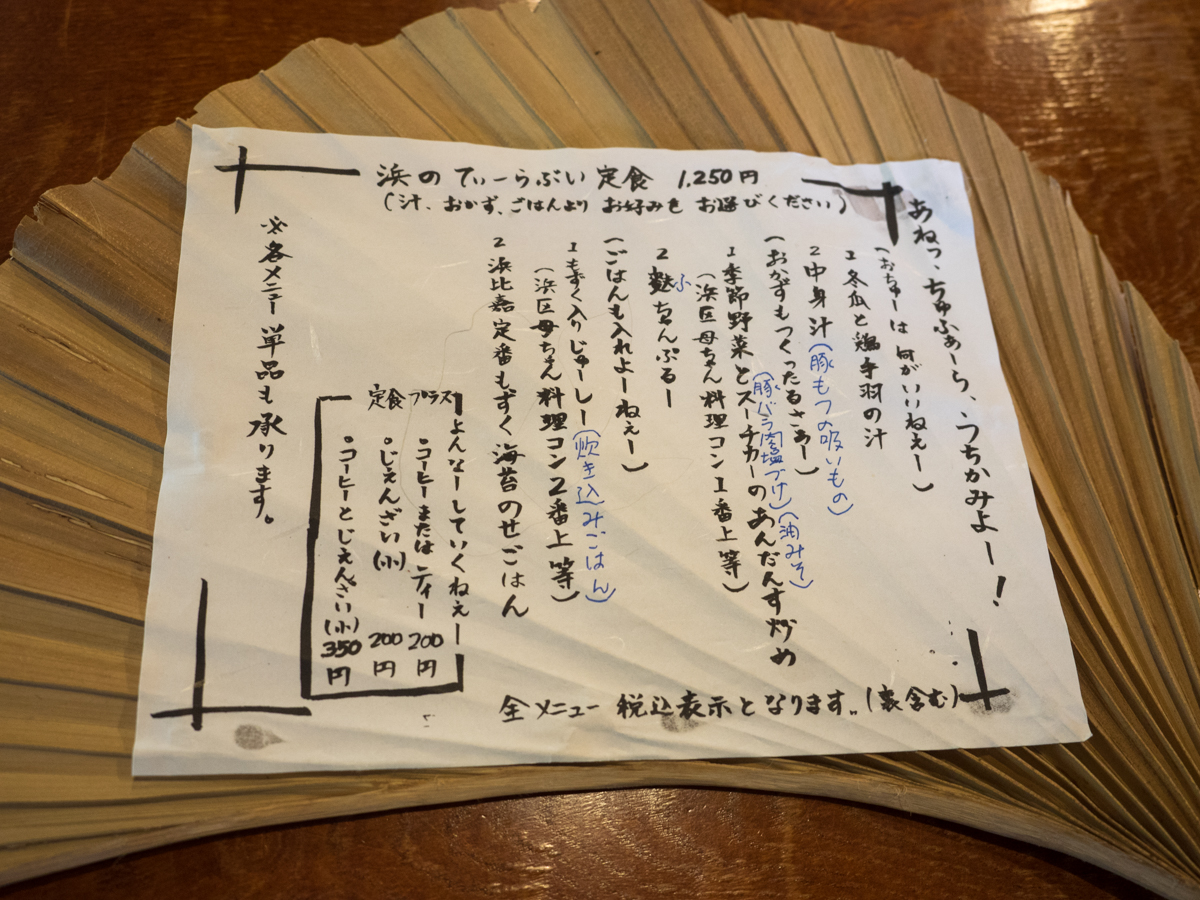 浜の てぃーらぶい 定食 1,250円
(汁、おかず、ごはんより お好みを お選びください)
あねっ、ちゅふぁーら、うちかみよー!
(おちゅーは 何がいいねぇー)
1 冬瓜と鶏手羽の汁
2 中身汁(豚もつの吸いもの)
(おかずもつくったるさぁー)
1 季節野菜とスーチカーのあんだんす炒め
(豚バラ肉塩づけ)(油みそ)
(浜区母ちゃん料理コン1番上等)
2 麩ちゃんぷるー
ふ
(ごはんも入れよーねぇー)
1 もずく入りじゅーしー(炊き込みごはん)
(浜区母ちゃん料理コン2番上等)
2 浜比嘉定番もずく海苔のせごはん
よんなーしていくねぇー
定食プラス
•コーヒーまたはティー 200円
•じぇんざい(小) 200円
•コーヒーとじぇんざい(小) 350円
※各メニュー単品も承ります。
全メニュー 税込表示となります。(裏含む)